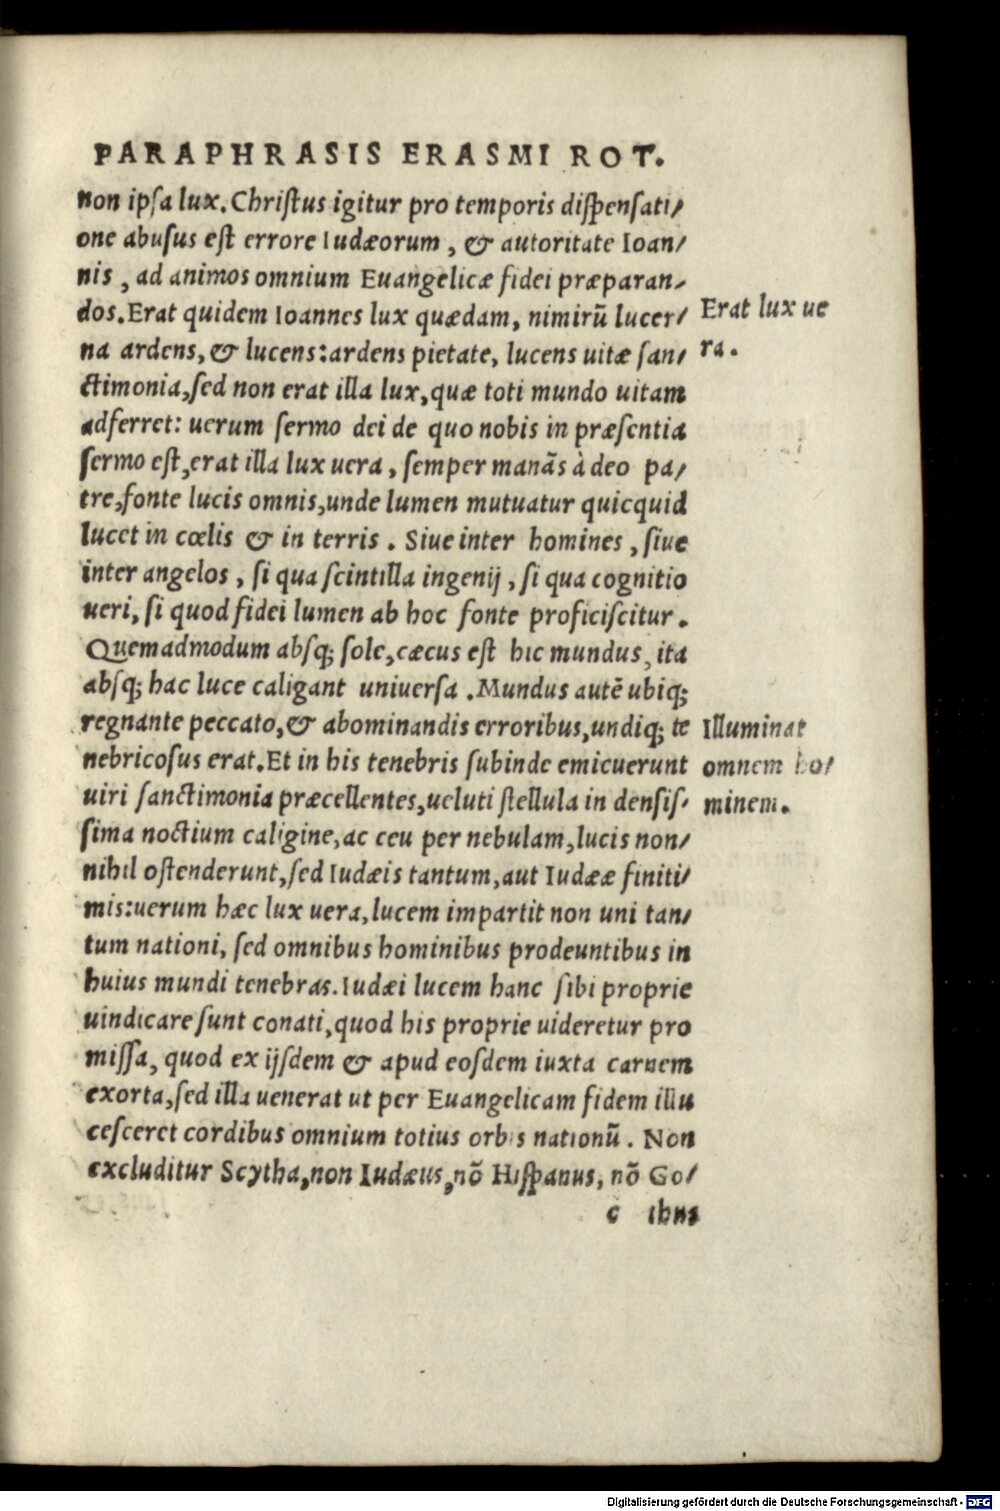 PARAPHRASIS ERASMI ROT.
non ipſa lux. Chriſtus igitur pro temporis diſpenſati/
one abuſus eſt errore Iudæorum, & autoritate Ioan/
nis, ad animos omnium Euangelicæ fidei præparan/
dos. Erat quidem Ioannes lux quædam, nimirū lucer/
na ardens, & lucens: ardens pietate, lucens uitæ ſan/
ctimonia, ſed non erat illa lux, quæ toti mundo uitam
adferret: uerum ſermo dei de quo nobis in præſentia
ſermo eſt, erat illa lux uera, ſemper manãs à deo pa/
tre, fonte lucis omnis, unde lumen mutuatur quicquid
lucet in cœlis & in terris. Siue inter homines, ſiue
inter angelos, ſi qua ſcintilla ingenij, ſi qua cognitio
ueri, ſi quod fidei lumen ab hoc fonte proficiſcitur.
Quemadmodum abſq; ſole, cæcus eſt hic mundus, ita
abſq; hac luce caligant uniuerſa. Mundus autē ubiq;
regnante peccato, & abominandis erroribus, undiq; te
nebricoſus erat. Et in his tenebris ſubinde emicuerunt
uiri ſanctimonia præcellentes, ueluti ſtellula in denſiſ/
ſima noctium caligine, ac ceu per nebulam, lucis non/
nihil oſtenderunt, ſed Iudæis tantum, aut Iudææ finiti/
mis: uerum hæc lux uera, lucem impartit non uni tan/
tum nationi, ſed omnibus hominibus prodeuntibus in
huius mundi tenebras. Iudæi lucem hanc ſibi proprie
uindicare ſunt conati, quod his proprie uideretur pro
miſſa, quod ex ijſdem & apud eoſdem iuxta carnem
exorta, ſed illa uenerat ut per Euangelicam fidem illu
ceſceret cordibus omnium totius orbis nationū. Non
excluditur Scytha, non Iudæus, nō Hiſpanus, nō Go/
c ibus
Erat lux ue
ra.
Illuminat
omnem ho/
minem.
Digitalisierung gefördert durch die Deutsche Forschungsgemeinschaft - DFG